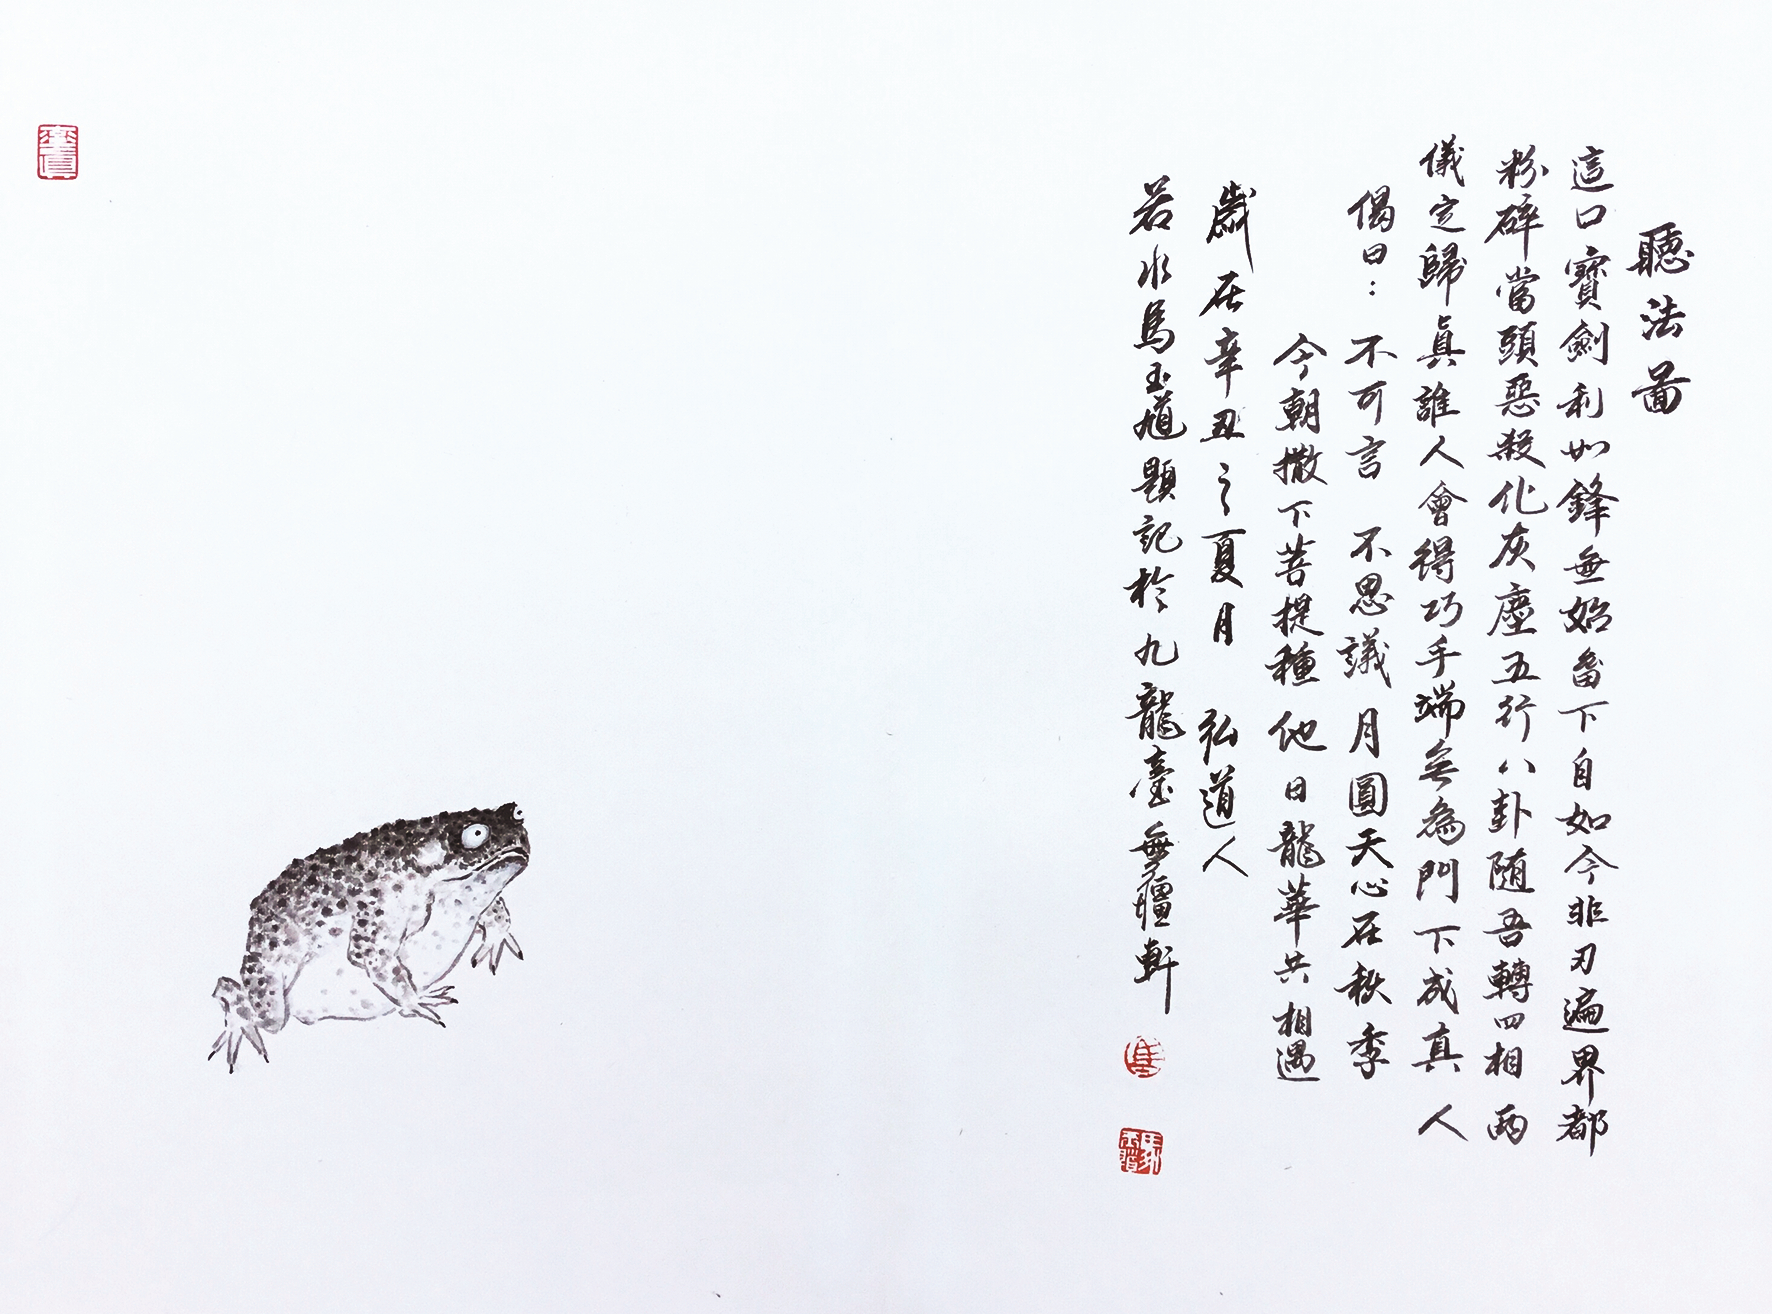 聽法啚
這口寶劍利如鋒無始畱下自如今非刃遍界都
粉碎當頭惡殺化灰塵五行八卦随吾轉四相兩
儀定歸真誰人會得巧手端無為門下成真人
偈曰：不可言 不思議 月圓天心在秋季
今朝撒下菩提種 他日龍華共相遇
歲在辛丑之夏月 弘道人
若水馬玉馗題記於九龍臺無疆軒